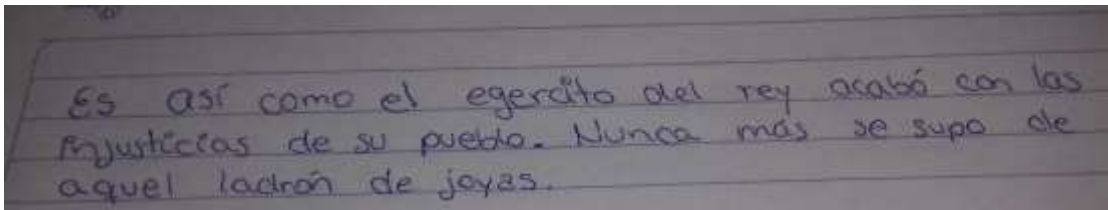 Es así como el egercito del rey acabó con las
injusticias de su pueblo. Nunca más se supo de
aquel ladrón de joyas.